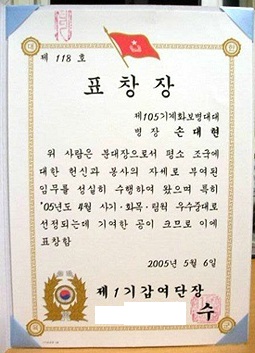 제 118 호
표 창 장
제105기계화보병대대
병 장 손 대 현
위 사람은 분대장으로서 평소 조국에
대한 헌신과 봉사의 자세로 부여된
임무를 성실히 수행하여 왔으며 특히
'05년도 4월 사기·화목·림적 우수중대로
선정되는데 기여한 공이 크므로 이에
표창함
2005년 5월 6일
제 1 기갑여단장
수